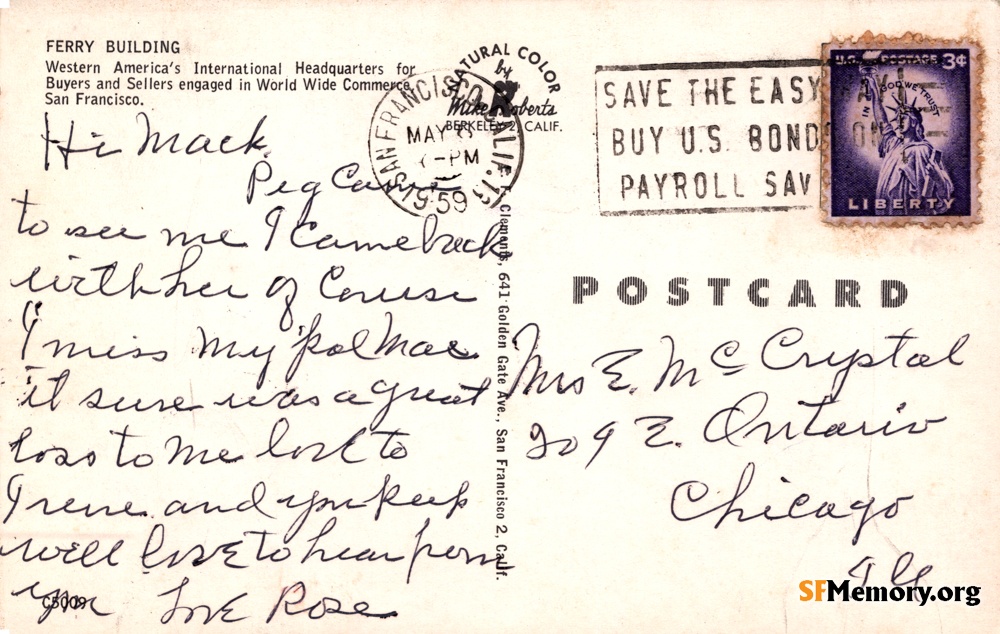 FERRY BUILDING
Western America's International Headquarters for
Buyers and Sellers engaged in World Wide Commerce,
San Francisco.
NATURAL COLOR
by
Mike Roberts
BERKELEY 2, CALIF.
SAN FRANCISCO CALIF. 13
MAY
-PM
59
SAVE THE EASY WAY
BUY U.S. BONDS ON
PAYROLL SAV
U.S. POSTAGE 3¢
IN GOD WE TRUST
LIBERTY
Hi Mack
Peg Came
to see me I came back
with her of Course
I miss my pal Mac
it sure was a great
loss to me love to
Irene and you keep
well love to hear from
you Love Rose
C5009
Clements, 641 Golden Gate Ave., San Francisco 2, Calif.
POSTCARD
Mrs E. Mc Crystal
209 E. Ontario
Chicago
Ill
SFMemory.org